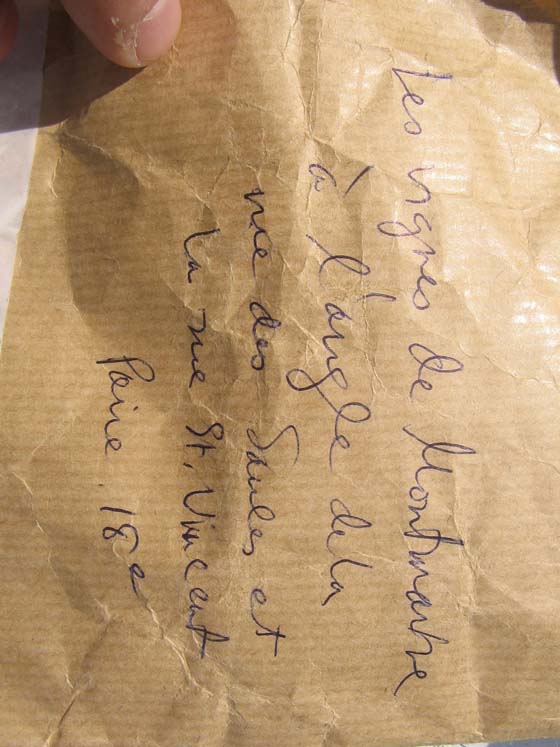 Les vignes de Montmartre
à l'angle de la
rue des Saules et
la rue St. Vincent
Paris 18e